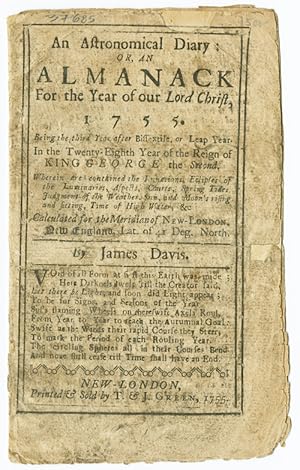 37685
An Astronomical Diary:
OR, AN
ALMANACK
For the Year of our Lord Christ,
1755.
Being the third Year after Bissextile, or Leap Year.
In the Twenty-Eighth Year of the Reign of
KING GEORGE the Second.
Wherein are contained the Lunations, Eclipses of
the Luminaries, Aspects, Courts, Spring Tides,
Judgment of the Weather, Sun and Moon's rising
and setting, Time of High Water, &c.
Calculated for the Meridian of NEW-LONDON,
New England, Lat. of 41 Deg. North.
By James Davis.
VOid of all Form at first this Earth was made;
Here Darkness dwelt till the Creator said,
Let there be Light, and soon did Light appear;
To be for Signs and Seasons of the Year.
Sol's flaming Wheels on Axels Roul,
From Year to Year to reach the Autumnal Goal.
Swift as the Winds their rapid Course they Steer,
To mark the Period of each Rouling Year.
The Circling Spheres all in their Courses Bend
And none shall cease till Time shall have an End.
NEW-LONDON,
Printed & Sold by T. & J. GREEN, 1755.